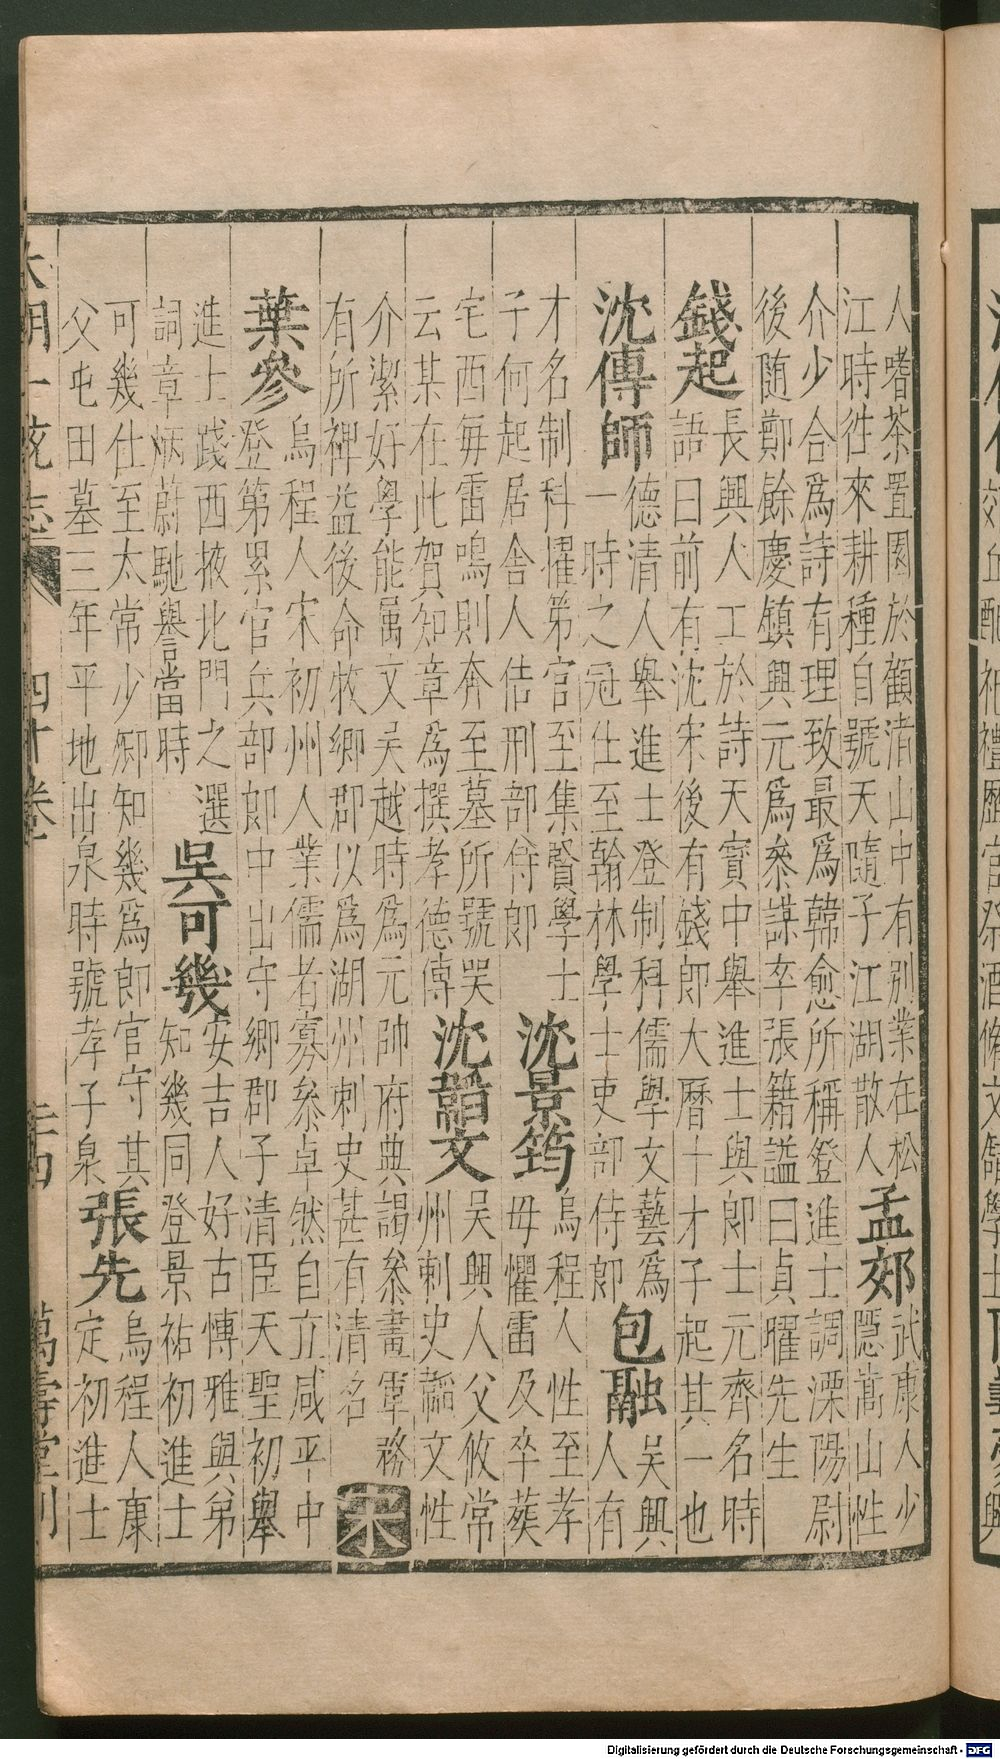 人嗜茶置園於顧渚山中有别業在松
江時徃來耕種自號天隨子江湖散人
孟郊
武康人少
隱嵩山性
介少合為詩有理致最為韓愈所稱登進士調溧陽尉
後随鄭餘慶鎮興元為叅謀卒張籍謚曰貞曜先生
錢起
長興人工於詩天寳中舉進士與郎士元齊名時
語曰前有沈宋後有錢郎大曆十才子起其一也
沈傳師
德清人舉進士登制科儒學文藝為
一時之冠仕至翰林學士吏部侍郎
包融
吴興
人有
才名制科擢第官至集賢學士
子何起居舍人佶刑部侍郎
沈景筠
烏程人性至孝
母懼雷及卒葬
宅西每雷鳴則奔至墓所號哭
云某在此賀知章為撰孝德傳
沈韜文
吳興人父攸常
州刺史韜文性
介潔好學能属文吴越時為元帥府典謁叅畫軍務
有所裨益後命牧鄉郡以為湖州刺史甚有清名
宋
葉參
烏程人宋初州人業儒者寡叅卓然自立咸平中
登第累官兵部郎中出守鄉郡子清臣天聖初舉
進士踐西掖北門之選
詞章炳蔚馳譽當時
吳可幾
安吉人好古慱雅與弟
知幾同登景祐初進士
可幾仕至太常少卿知幾為郎官守其
父屯田墓三年平地出泉時號孝子泉
張先
烏程人康
定初進士
大明一統志 四十卷 二四 萬壽堂刊
Digitalisierung gefördert durch die Deutsche Forschungsgemeinschaft - DFG